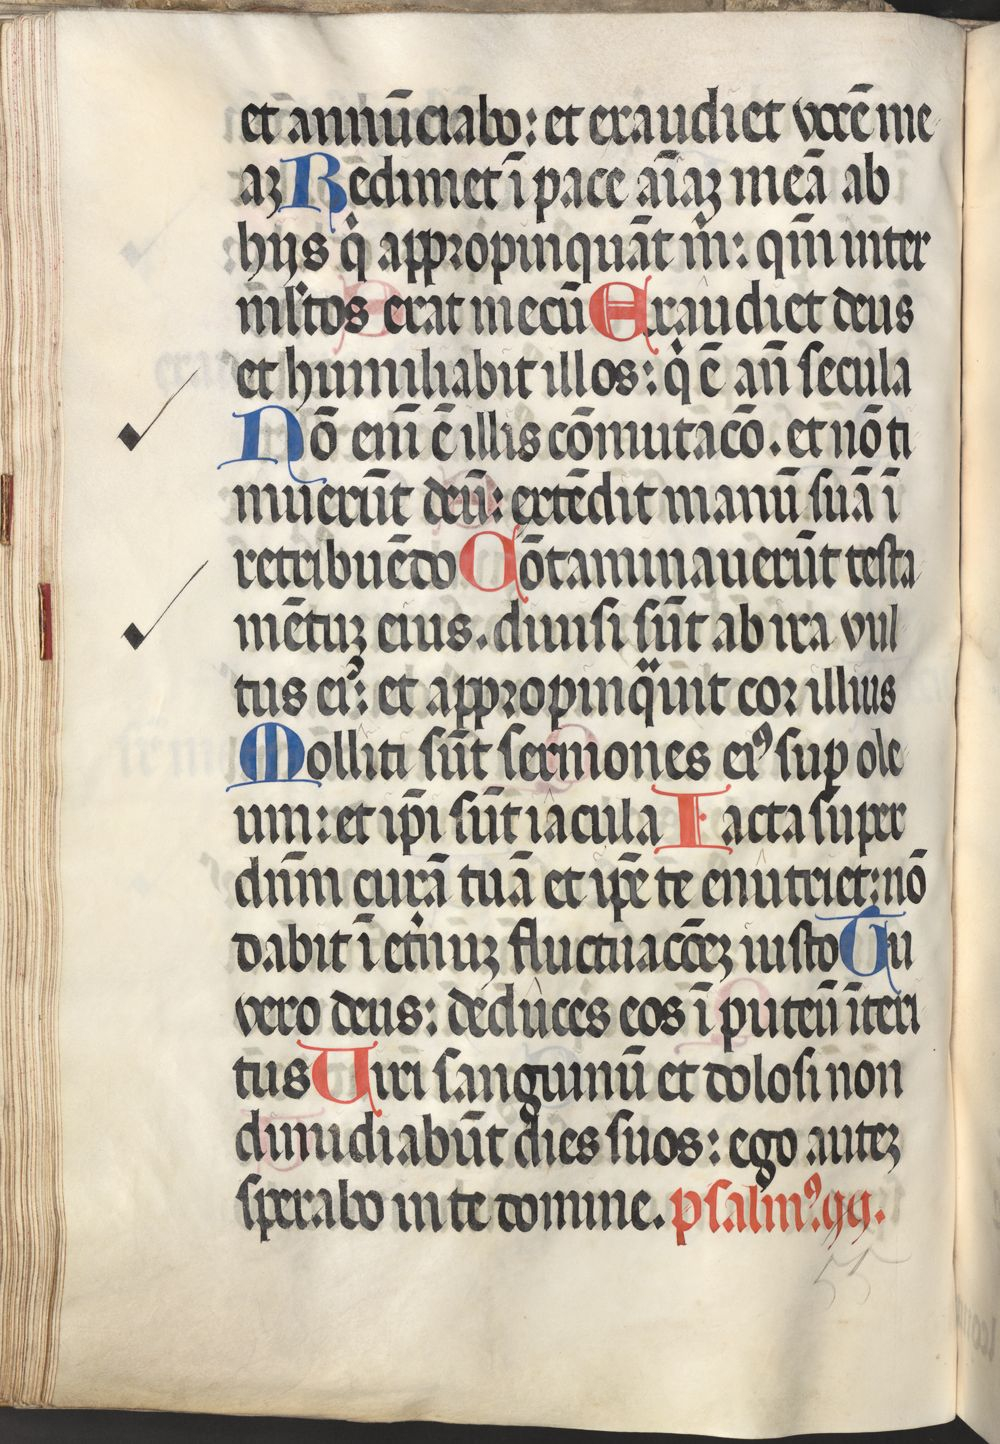 et annūciabo: et exaudiet vocē me
aꝫ Redimet ī pace aīaꝫ meā ab
hijs q̇ appropinquāt m̄: qm̄ inter
ml̄tos erat mecū Exaudiet deus
et humiliabit illos: q̇ ē an̄ secula
Nō em̄ ē illis cōmutacō. et nō ti
muerūt deū: extēdit manū suā ī
retribuēdo Cōtaminauerūt testa
mētuꝫ eius. diuisi sūt ab ira vul
tus eiꝰ: et appropinquit cor illius
Molliti sūt sermones eiꝰ sup ole
um: et ip̄i sūt iacula Iacta super
dn̄m curā tuā et ip̄e te enutriet: nō
dabit ī eternuꝫ fluctuacōeꝫ iusto Tu
vero deus: deduces eos ī puteū īteri
tus Uiri sanguinū et dolosi non
dimidiabūt dies suos: ego auteꝫ
sperabo in te domine. psalmꝰ. 55.
55